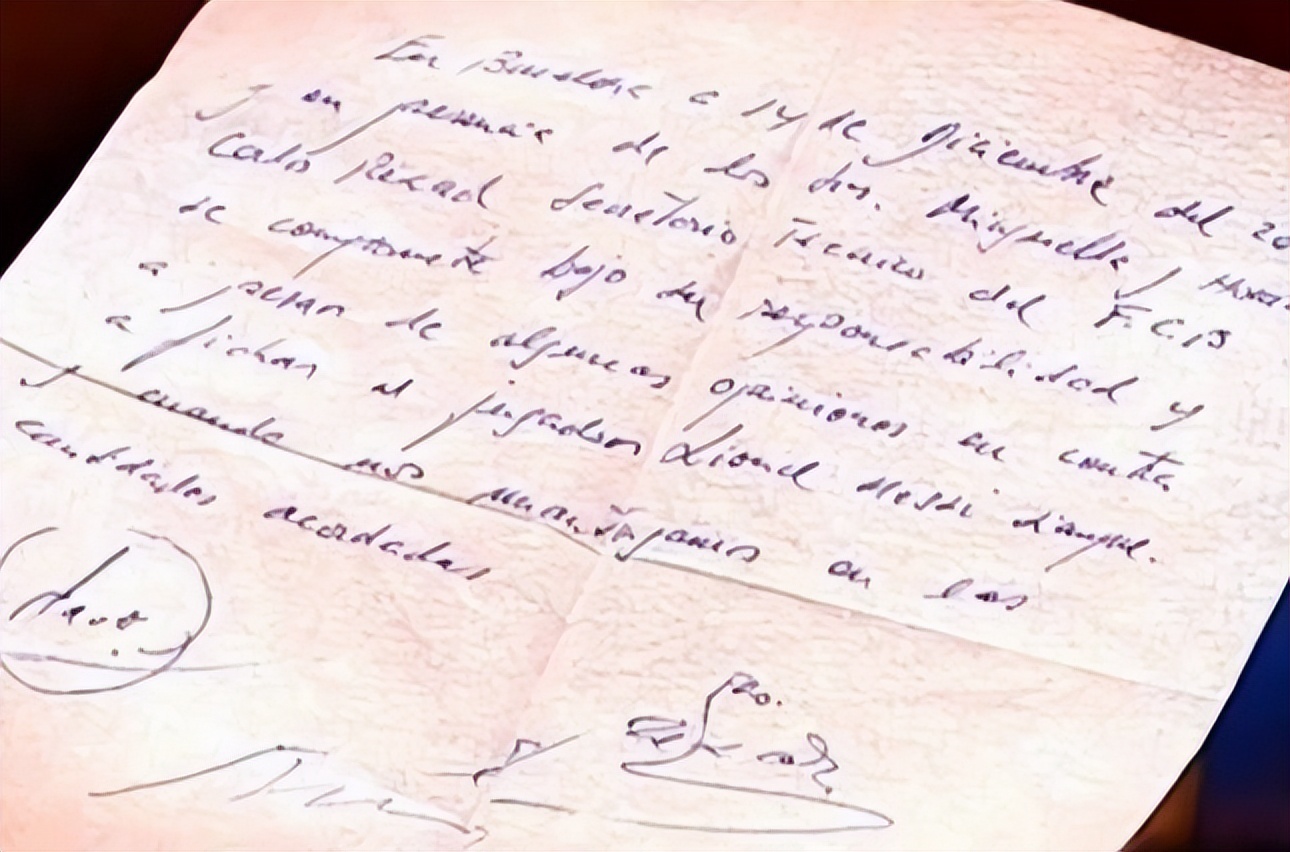 En Barcelona a 14 de Diciembre del 20
y en presencia de los Srs. Minguella y Hora
Carlos Rexach Secretario Técnico del F.C.B
se compromete bajo su responsabilidad y
a pesar de algunas opiniones en contra
a fichar al jugador Lionel Messi siempre
y cuando nos mantengamos en las
cantidades acordadas
Fdo.